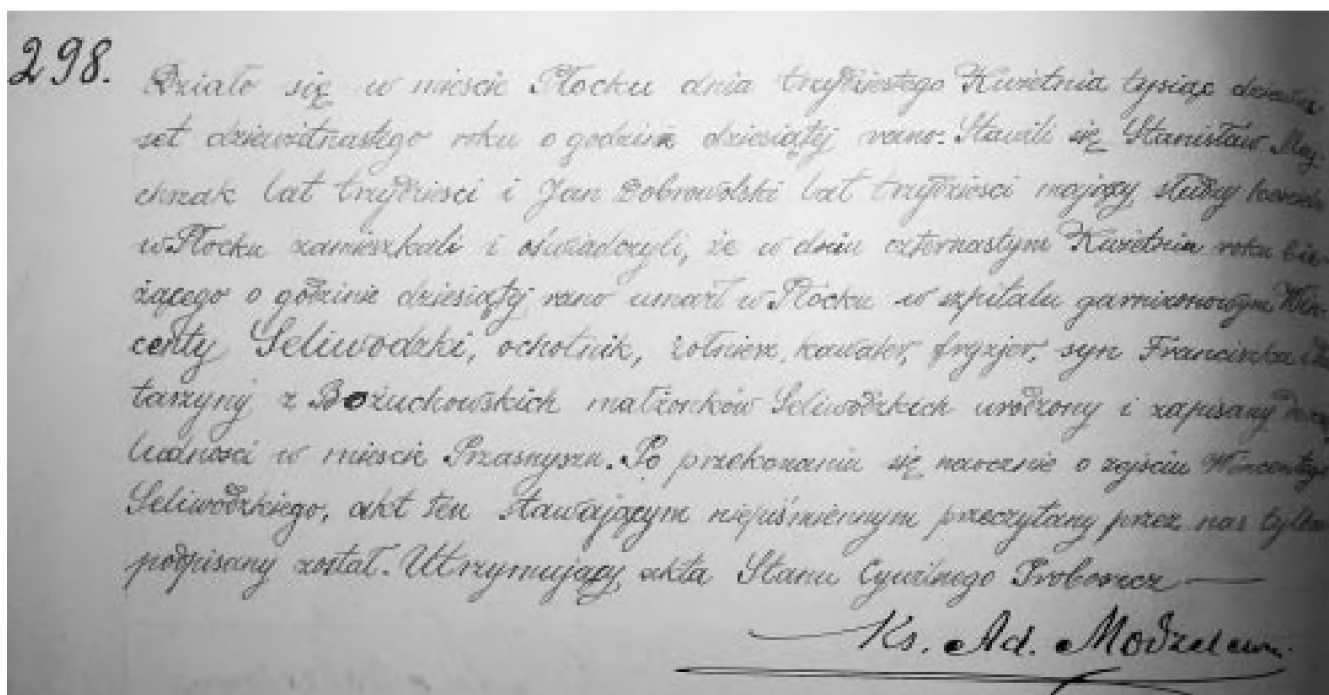 298.
Działo się w mieście Płocku dnia trzydziestego Kwietnia tysiąc dziewięć
set dziewiętnastego roku o godzinie dziesiątej rano. Stawili się Stanisław
lat trzydzieści i Jan Dobrowolski lat trzydzieści mający, słudzy
w Płocku zamieszkali i oświadczyli, że w dniu czternastym Kwietnia roku bie-
żącego o godzinie dziesiątej rano umarł w Płocku w szpitalu garnizonowym Win-
centy Seliwodzki, ochotnik, żołnierz, kawaler, fryzjer, syn Franciszka i Ka
tarzyny z Bożuchowskich małżonków Seliwodzkich urodzony i zapisany do
ludności w mieście Przasnyszu. Po przekonaniu się naocznie o zejściu Wincentego
Seliwodzkiego, akt ten stawającym niepiśmiennym przeczytany przez nas tylko
podpisany został. Utrzymujący akta Stanu Cywilnego Proboszcz
Ks. Ad. Modzelewski